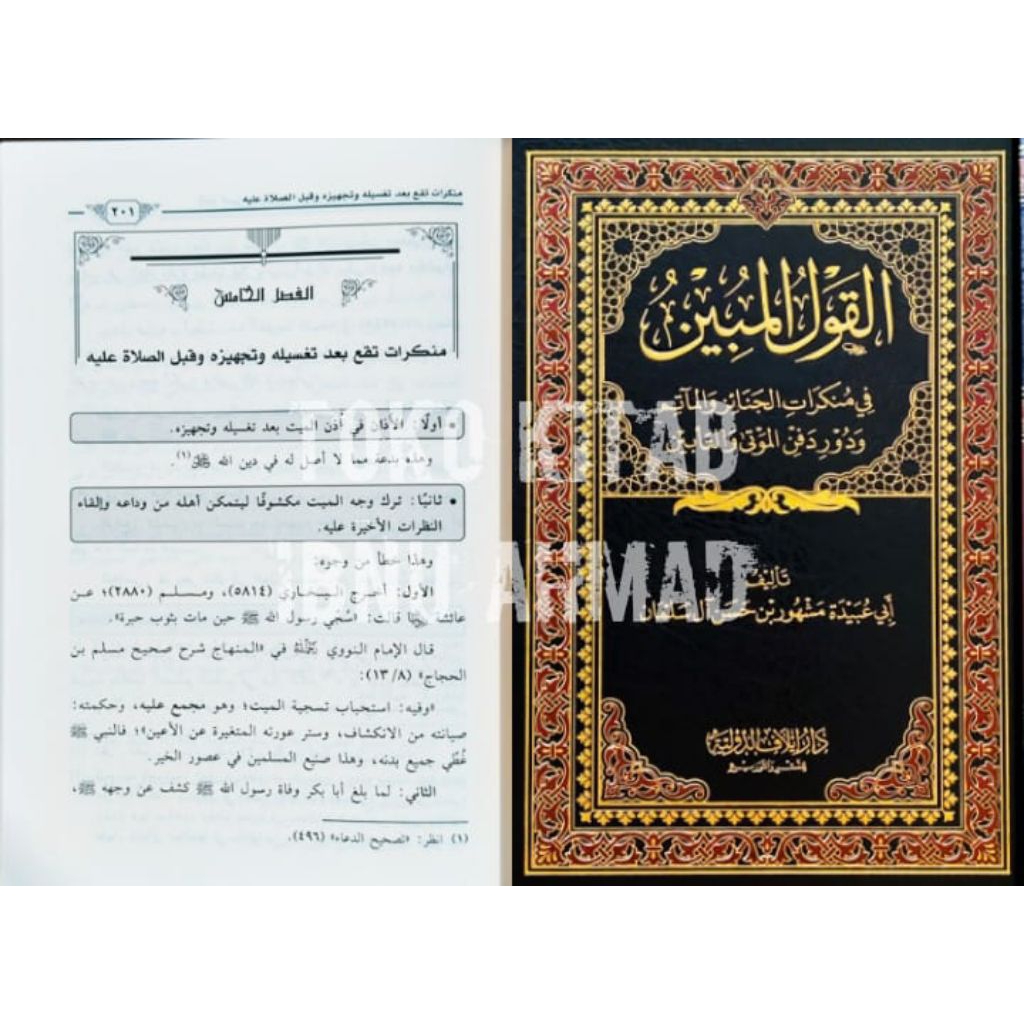 منكرات تقع بعد تغسيله وتجهيزه وقبل الصلاة عليه
٢٠١
الفصل الخامس
منكرات تقع بعد تغسيله وتجهيزه وقبل الصلاة عليه
• أولًا: الأذان في أذن الميت بعد تغسيله وتجهيزه.
وهذه بدعة مما لا أصل له في دين الله ﷻ(١).
• ثانيًا: ترك وجه الميت مكشوفًا ليتمكن أهله من وداعه وإلقاء
النظرات الأخيرة عليه.
وهذا خطأ من وجوه:
الأول: أخرج البخاري (٥٨١٤)، ومسلم (٢٨٨٠)؛ عن
عائشة قالت: «سُجّي رسول الله ﷺ حين مات بثوب حبرة».
قال الإمام النووي في «المنهاج شرح صحيح مسلم بن
الحجاج» (٨/ ١٣):
«وفيه: استحباب تسجية الميت؛ وهو مجمع عليه، وحكمته:
صيانته من الانكشاف، وستر عورته المتغيرة عن الأعين»؛ فالنبي ﷺ
غُطّي جميع بدنه، وهذا صنيع المسلمين في عصور الخير.
الثاني: لما بلغ أبا بكر وفاة رسول الله ﷺ كشف عن وجهه ﷺ،
(١) انظر: «تصحيح الدعاء» (٤٩٦).
القَوْلُ المُبِيْنُ
فِي مُنكَرَاتِ الجَنَائِزِ وَالمَآتِمِ
وَدُورِ دَفْنِ المَوْتَى وَالتَّأْبِينِ
تَأليفُ
أَبِي عُبَيْدَة مَشْهُور بْن حَسَن آل سَلْمَان
دار إيلاف الدولية
للنشر والتوزيع
TOKO KITAB
IBNU AHMAD